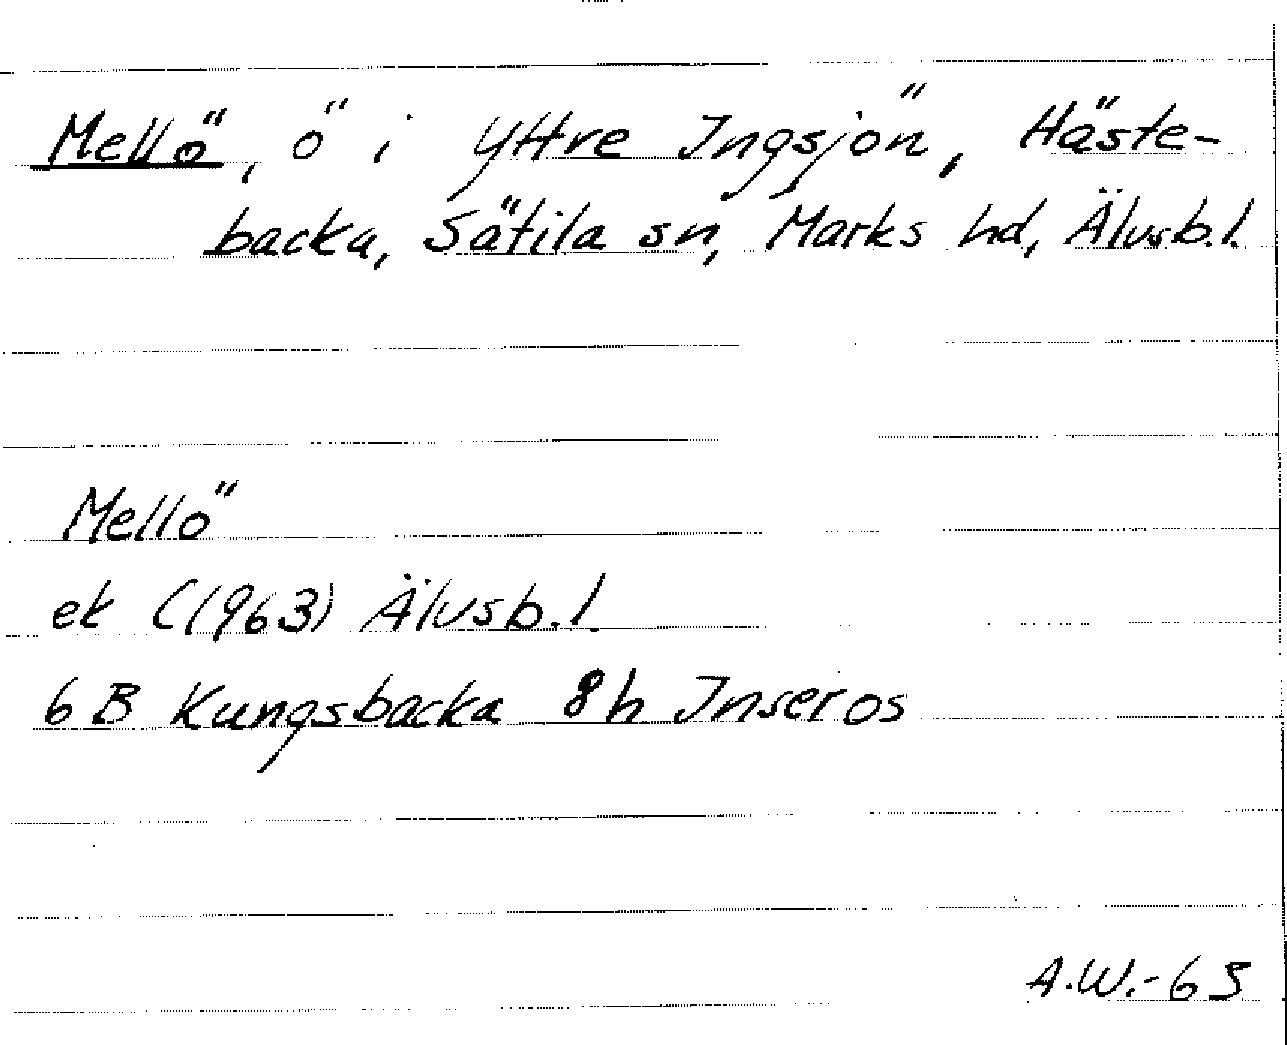 Mellö, ö i Yttre Ingsjön, Häste-
backa, Sätila sn, Marks hd, Älvsb.l.
Mellö
ek (1963) Älvsb.l.
6 B Kungsbacka 8h Inseros
A.W.-63